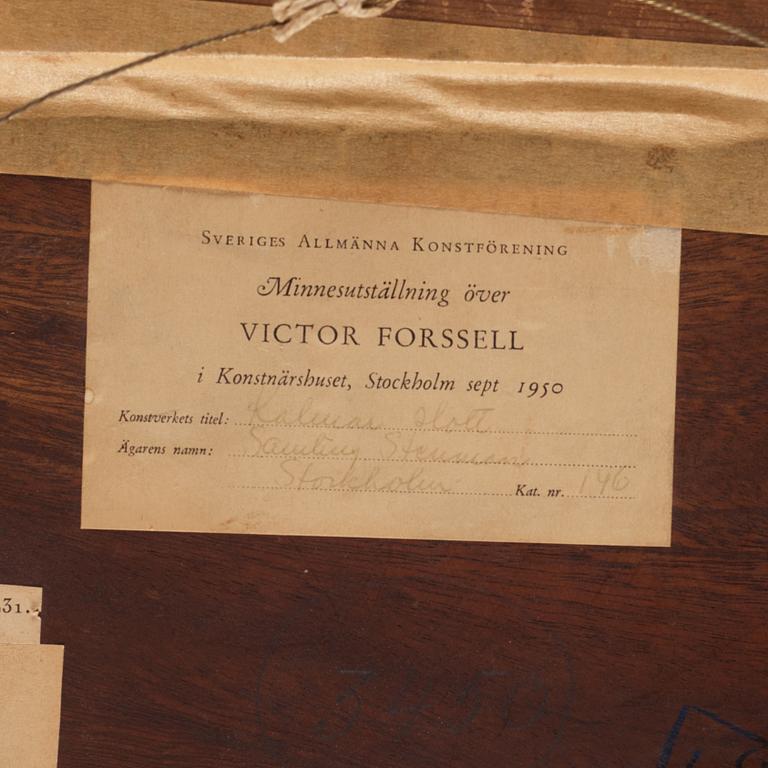 Sveriges Allmänna Konstförening
Minnesutställning över
VICTOR FORSSELL
i Konstnärshuset, Stockholm sept 1950
Konstverkets titel: Kalmar slott
Ägarens namn: Samling Stenman
Stockholm Kat. nr. 146
31.
(3450)